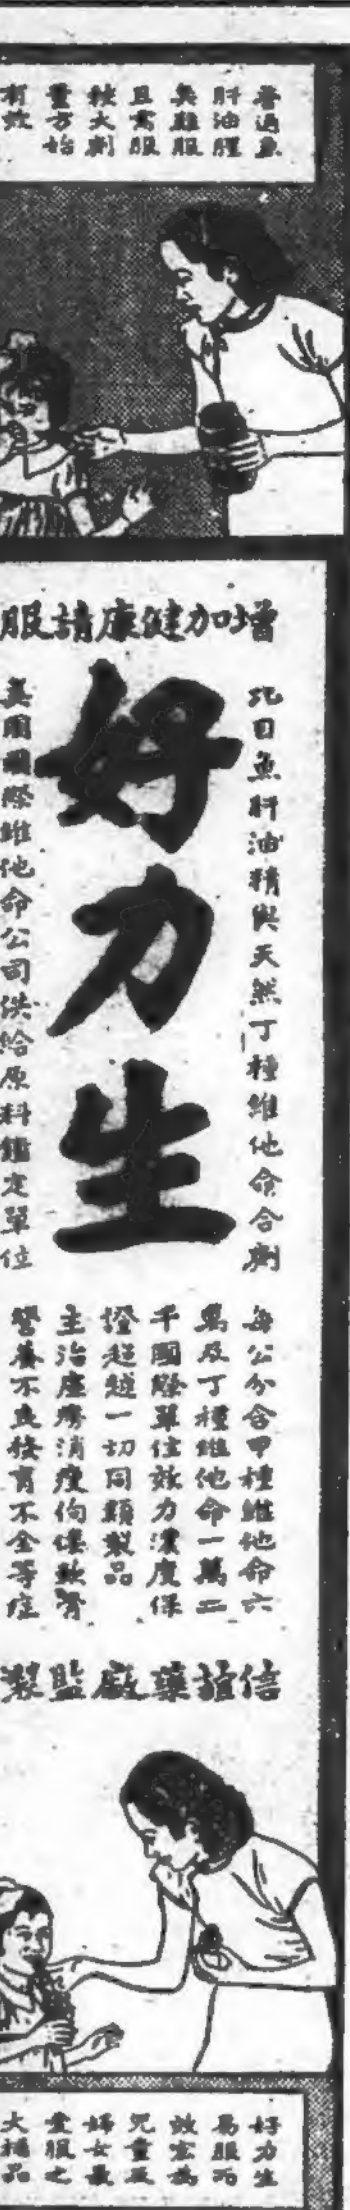 普通魚
肝油腥
臭難服
且需服
較大劑
量方始
有效
增加健康請服
比目魚肝油精與天然丁種維他命合劑
好力生
美國國際維他命公司供給原料鑑定單位
每公分含甲種維他命六
萬及丁種維他命一萬二
千國際單位效力濃度保
證超越一切同類製品
主治虛癆消瘦佝僂軟骨
營養不良發育不全等症
信誼藥廠監製
好力生
易服而
效宏為
兒童及
婦女最
愛服之
大補品